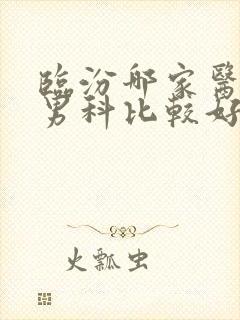 臨汾那家醫
男科比較好
火瓢虫